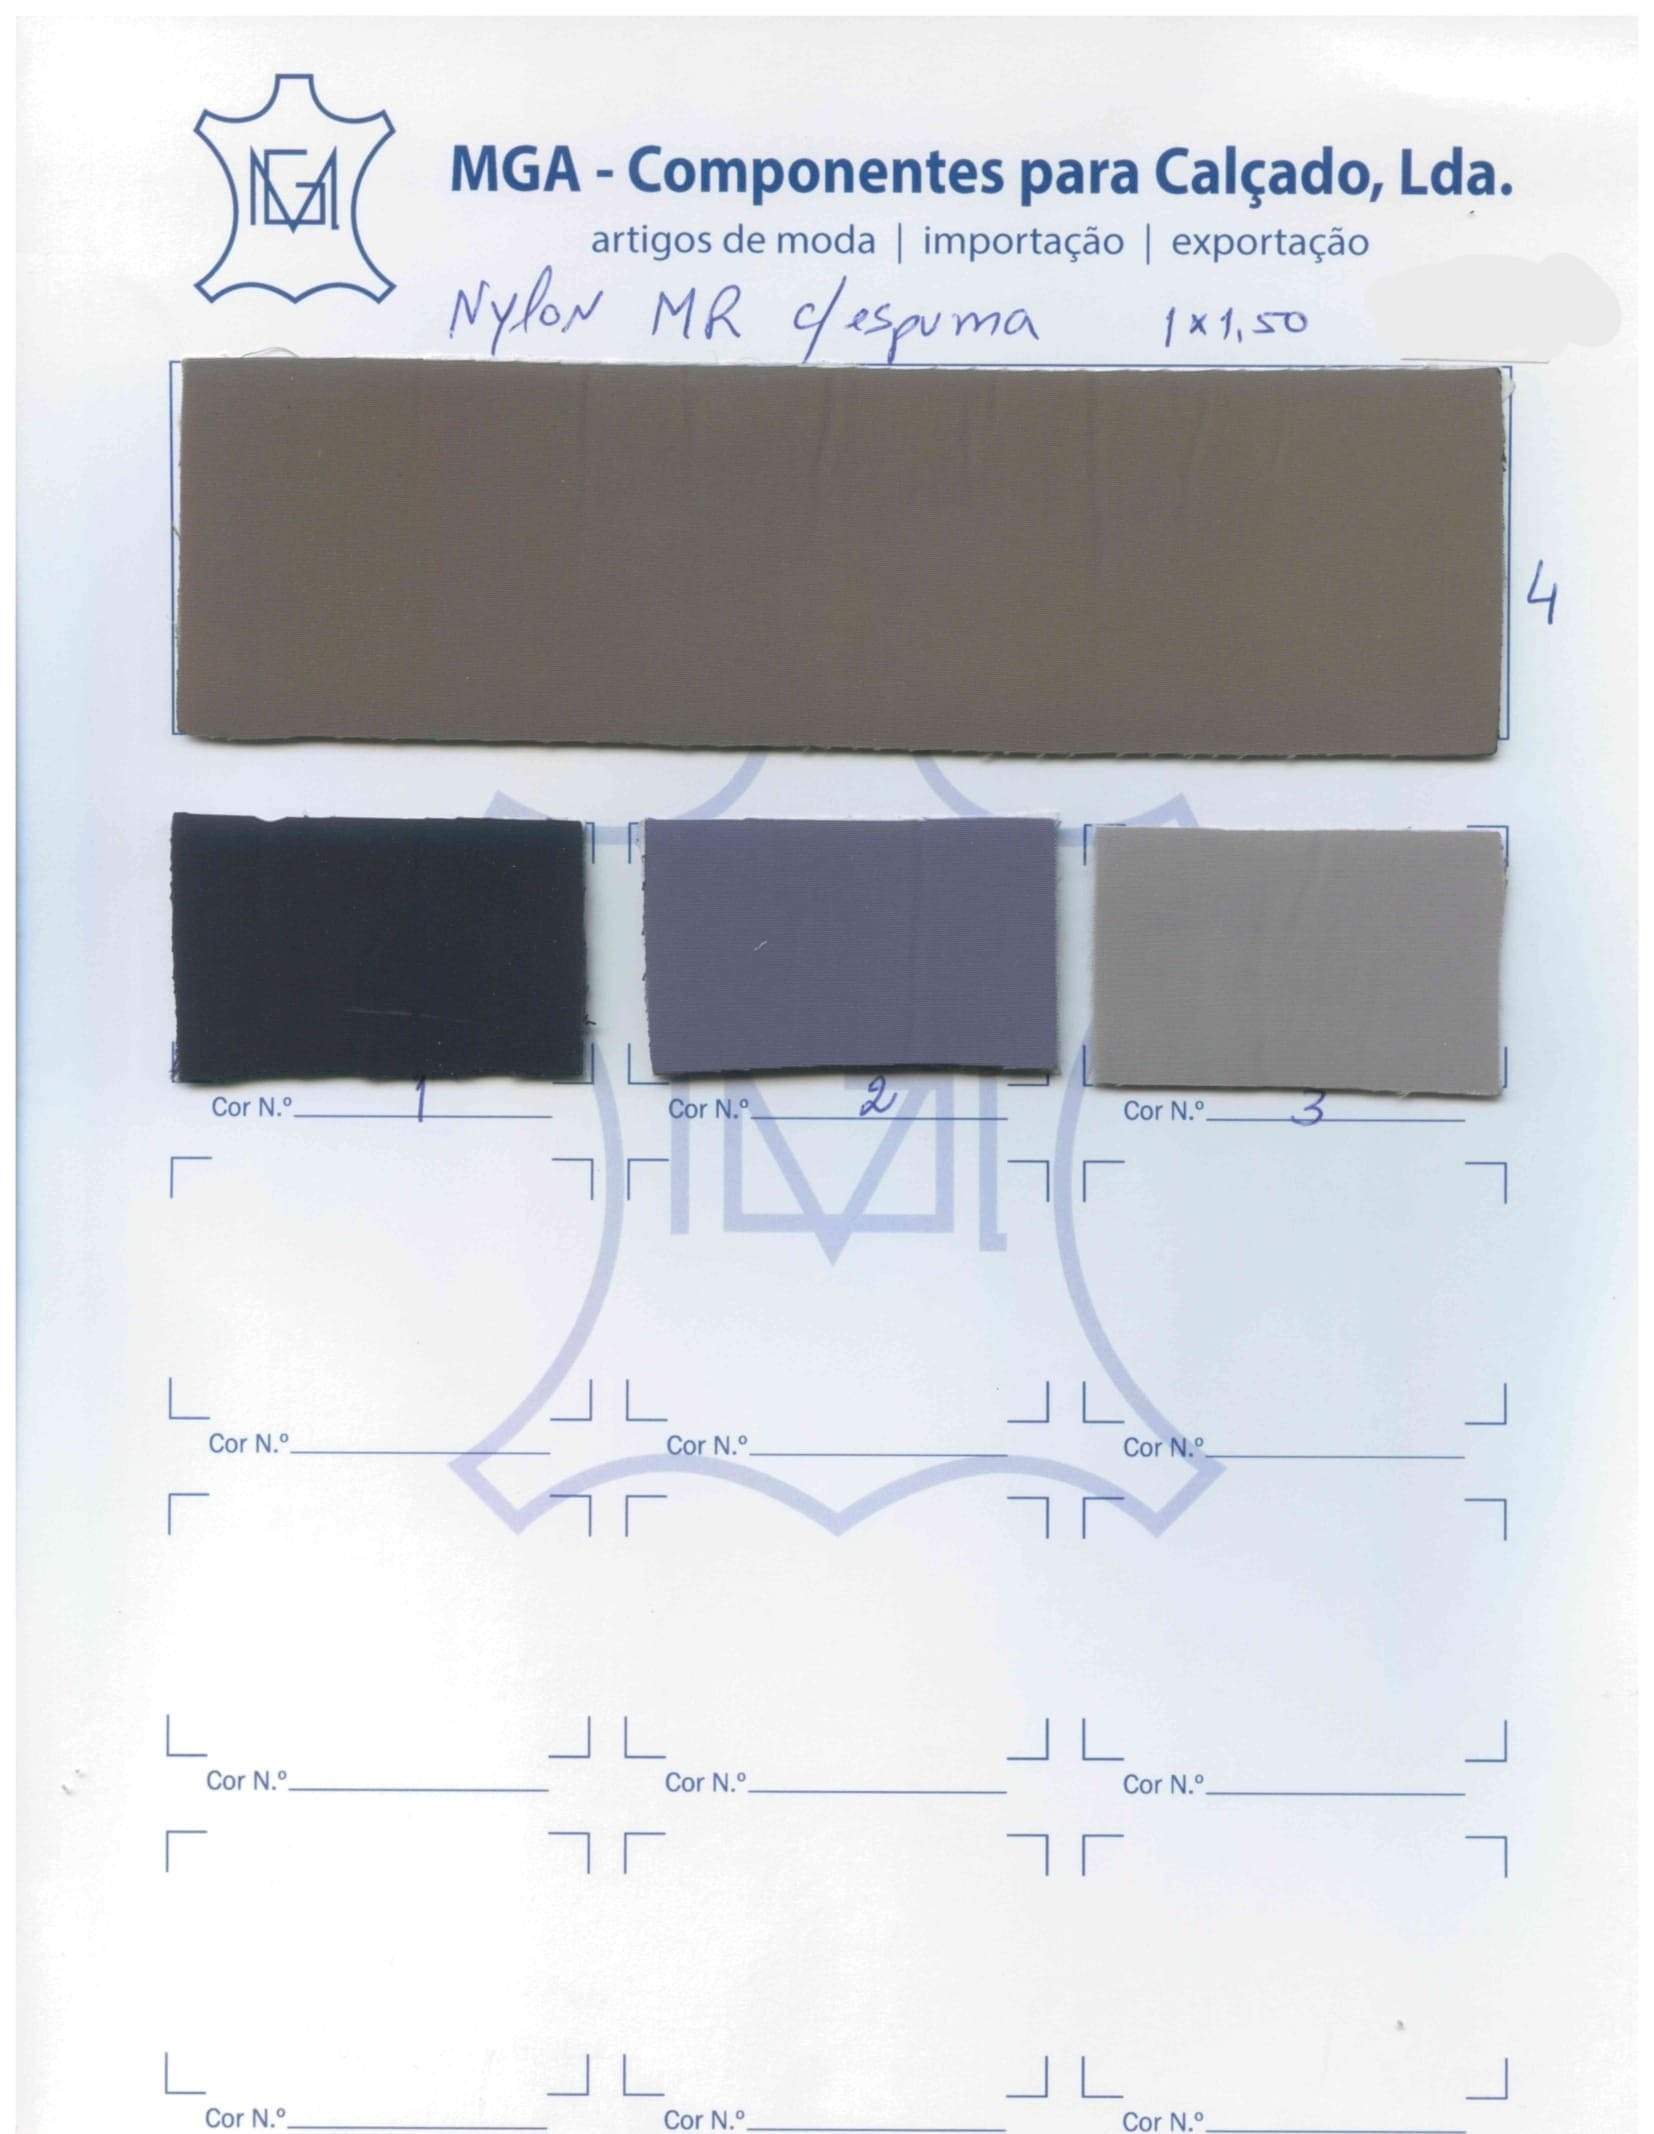 MGA
MGA - Componentes para Calçado, Lda.
artigos de moda | importação | exportação
Nylon MR c/espuma 1x1,50
4
Cor N.º 1 Cor N.º 2 Cor N.º 3
Cor N.º Cor N.º Cor N.º
Cor N.º Cor N.º Cor N.º
Cor N.º Cor N.º Cor N.º